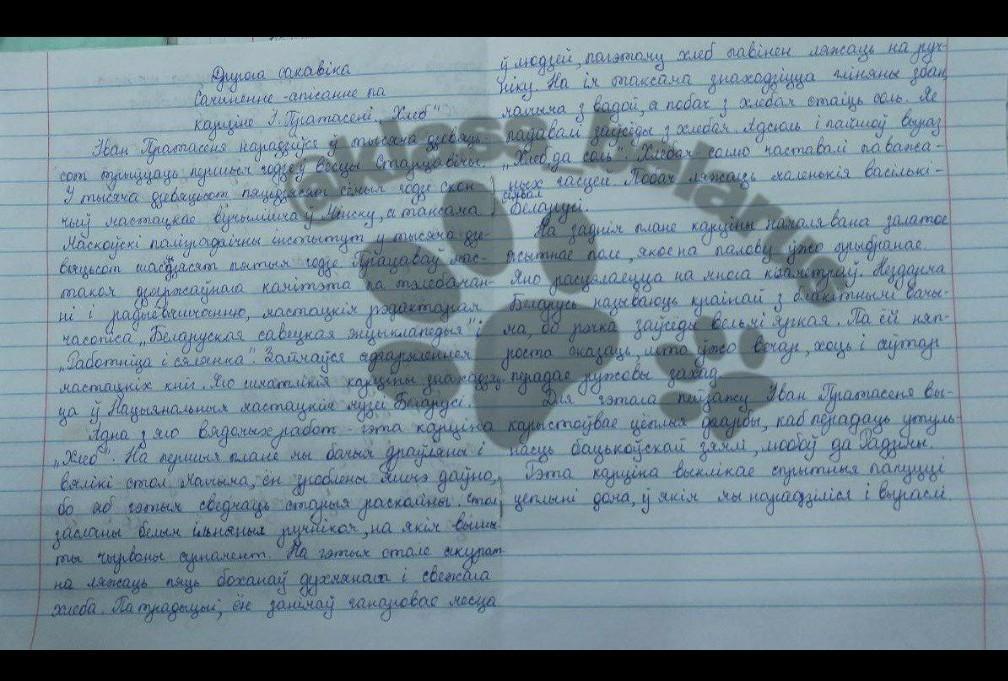 Другога сакавіка
Сачыненне-апісанне па
карціне І. Пратасені „Хлеб"
Іван Пратасеня нарадзіўся ў тысяча дзевяць-
сот трыццаць першым годзе ў вёсцы Старцавічы.
У тысяча дзевяцьсот пяцьдзясят сёмым годзе скон-
чыў мастацкае вучылішча ў Мінску, а таксама
Маскоўскі паліграфічны інстытут у тысяча дзе-
вяцьсот шасцьдзясят пятым годзе. Працаваў мас-
таком дзяржаўнага камітэта па тэлебачан-
ні і радыёвяшчанню, мастацкім рэдактарам
часопіса „Беларуская савецкая энцыклапедыя" і
„Работніца і сялянка". Займаўся афармленнем
мастацкіх кніг. Яго шматлікія карціны знаходзя-
ца ў Нацыянальным мастацкім музеі Беларусі.
Адна з яго вядомых работ - гэта карціна
„Хлеб". На першым плане мы бачым драўляны і
вялікі стол. Магчыма, ён зроблены яшчэ даўно,
бо аб гэтым сведчаць старыя расколіны. Стол
засланы белым ільняным ручніком, на якім вышы-
ты чырвоны арнамент. На гэтым стале акурат-
на ляжаць пяць боханаў духмянага і свежага
хлеба. Па традыцыі, ён займаў ганаровае месца
ў людзей, пагэтаму хлеб павінен ляжаць на руч-
ніку. На ім таксама знаходзіцца гліняны збан,
магчыма з вадой, а побач з хлебам стаіць соль. Яе
падавалі заўсёды з хлебам. Адсюль і пайшоў выраз
„Хлеб да соль". Хлебам соллю частавалі паважа-
ных гасцей. Побач ляжаць маленькія васількі-
сімвал
Беларусі.
На заднім плане карціны намалявана залатое
жытнае поле, якое на палову ўжо прыбранае.
Яно расцілаецца на многа кіламетраў. Нездарма
Беларусь называюць краінай з блакітнымі вачы-
ма, бо рэчка заўсёды вельмі яркая. Па ёй няп-
роста сказаць, што ўжо вечар, хоць і аўтар
перадае ружовы захад.
Для гэтага пейзажу Іван Пратасеня вы-
карыстоўвае цёплыя фарбы, каб перадаць утуль-
насць бацькоўскай зямлі, любоў да Радзімы.
Гэта карціна выклікае спрыятныя пачуцці
цеплыні дома, ў якім мы нарадзіліся і выраслі.
@klass_belarus